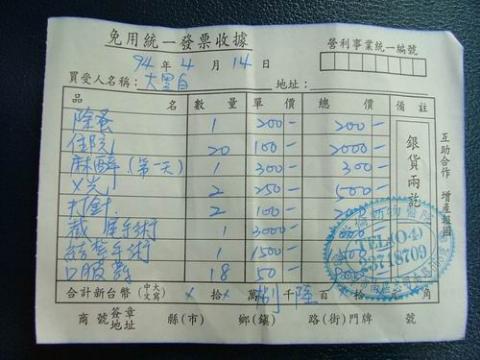 免用統一發票收據
營利事業統一編號
94 年 4 月 14 日
買受人名稱：大里自 地址：
品 名 數 量 單 價 總 價 備 註
除蚤 1 200- 200-
住院 20 100- 2000-
麻醉(第一天) 1 300- 300-
X光 2 250- 500-
打針 2 100- 200
截 手術 1 3000-
結紮手術 1 1500-
口服藥 18 50-
銀貨兩訖
互助合作 增產報國
TEL(04)
合計新台幣(中文大寫) 拾 萬 捌 千 陸 百 拾 角
商號簽章地址 縣(市) 鄉(鎮) 路(街)門牌 號